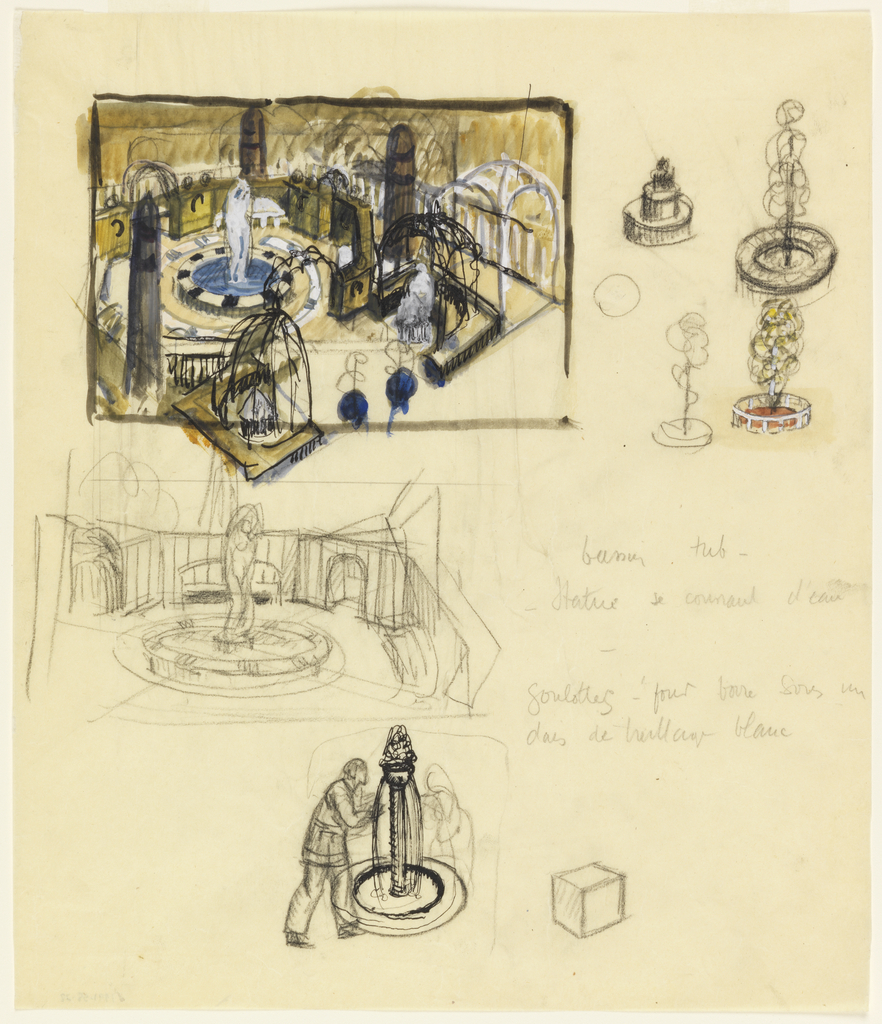 bassin tub -
- Statue se couvrant d'eau
-
goulottes - pour boire sous un
dais de treillage blanc